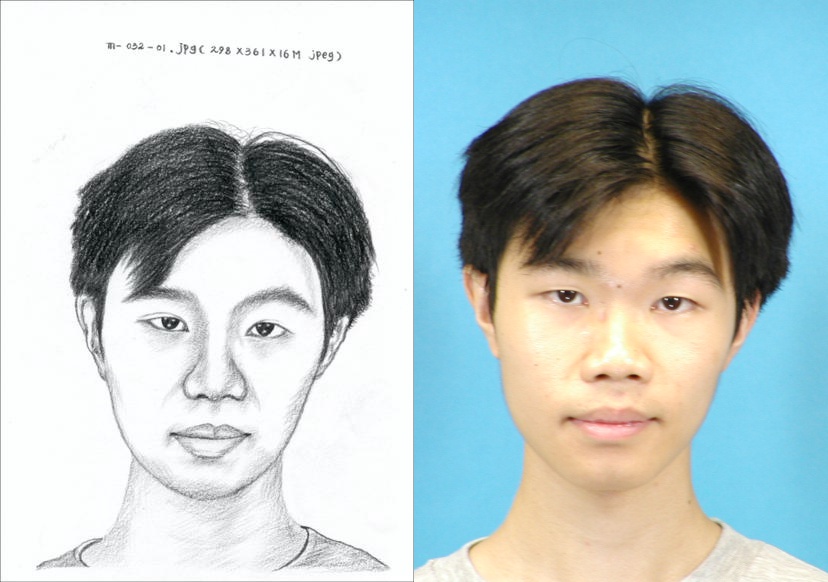 m-032-01.jpg( 298 X 361 X 16M jpeg)